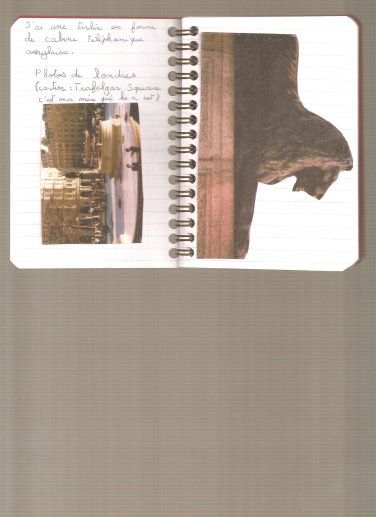 J'ai une tirlir en forme
de cabine téléphonique
anglaise.
Photos de Londres
(carton : Trafalgar Square
c'est ma mère qui les a